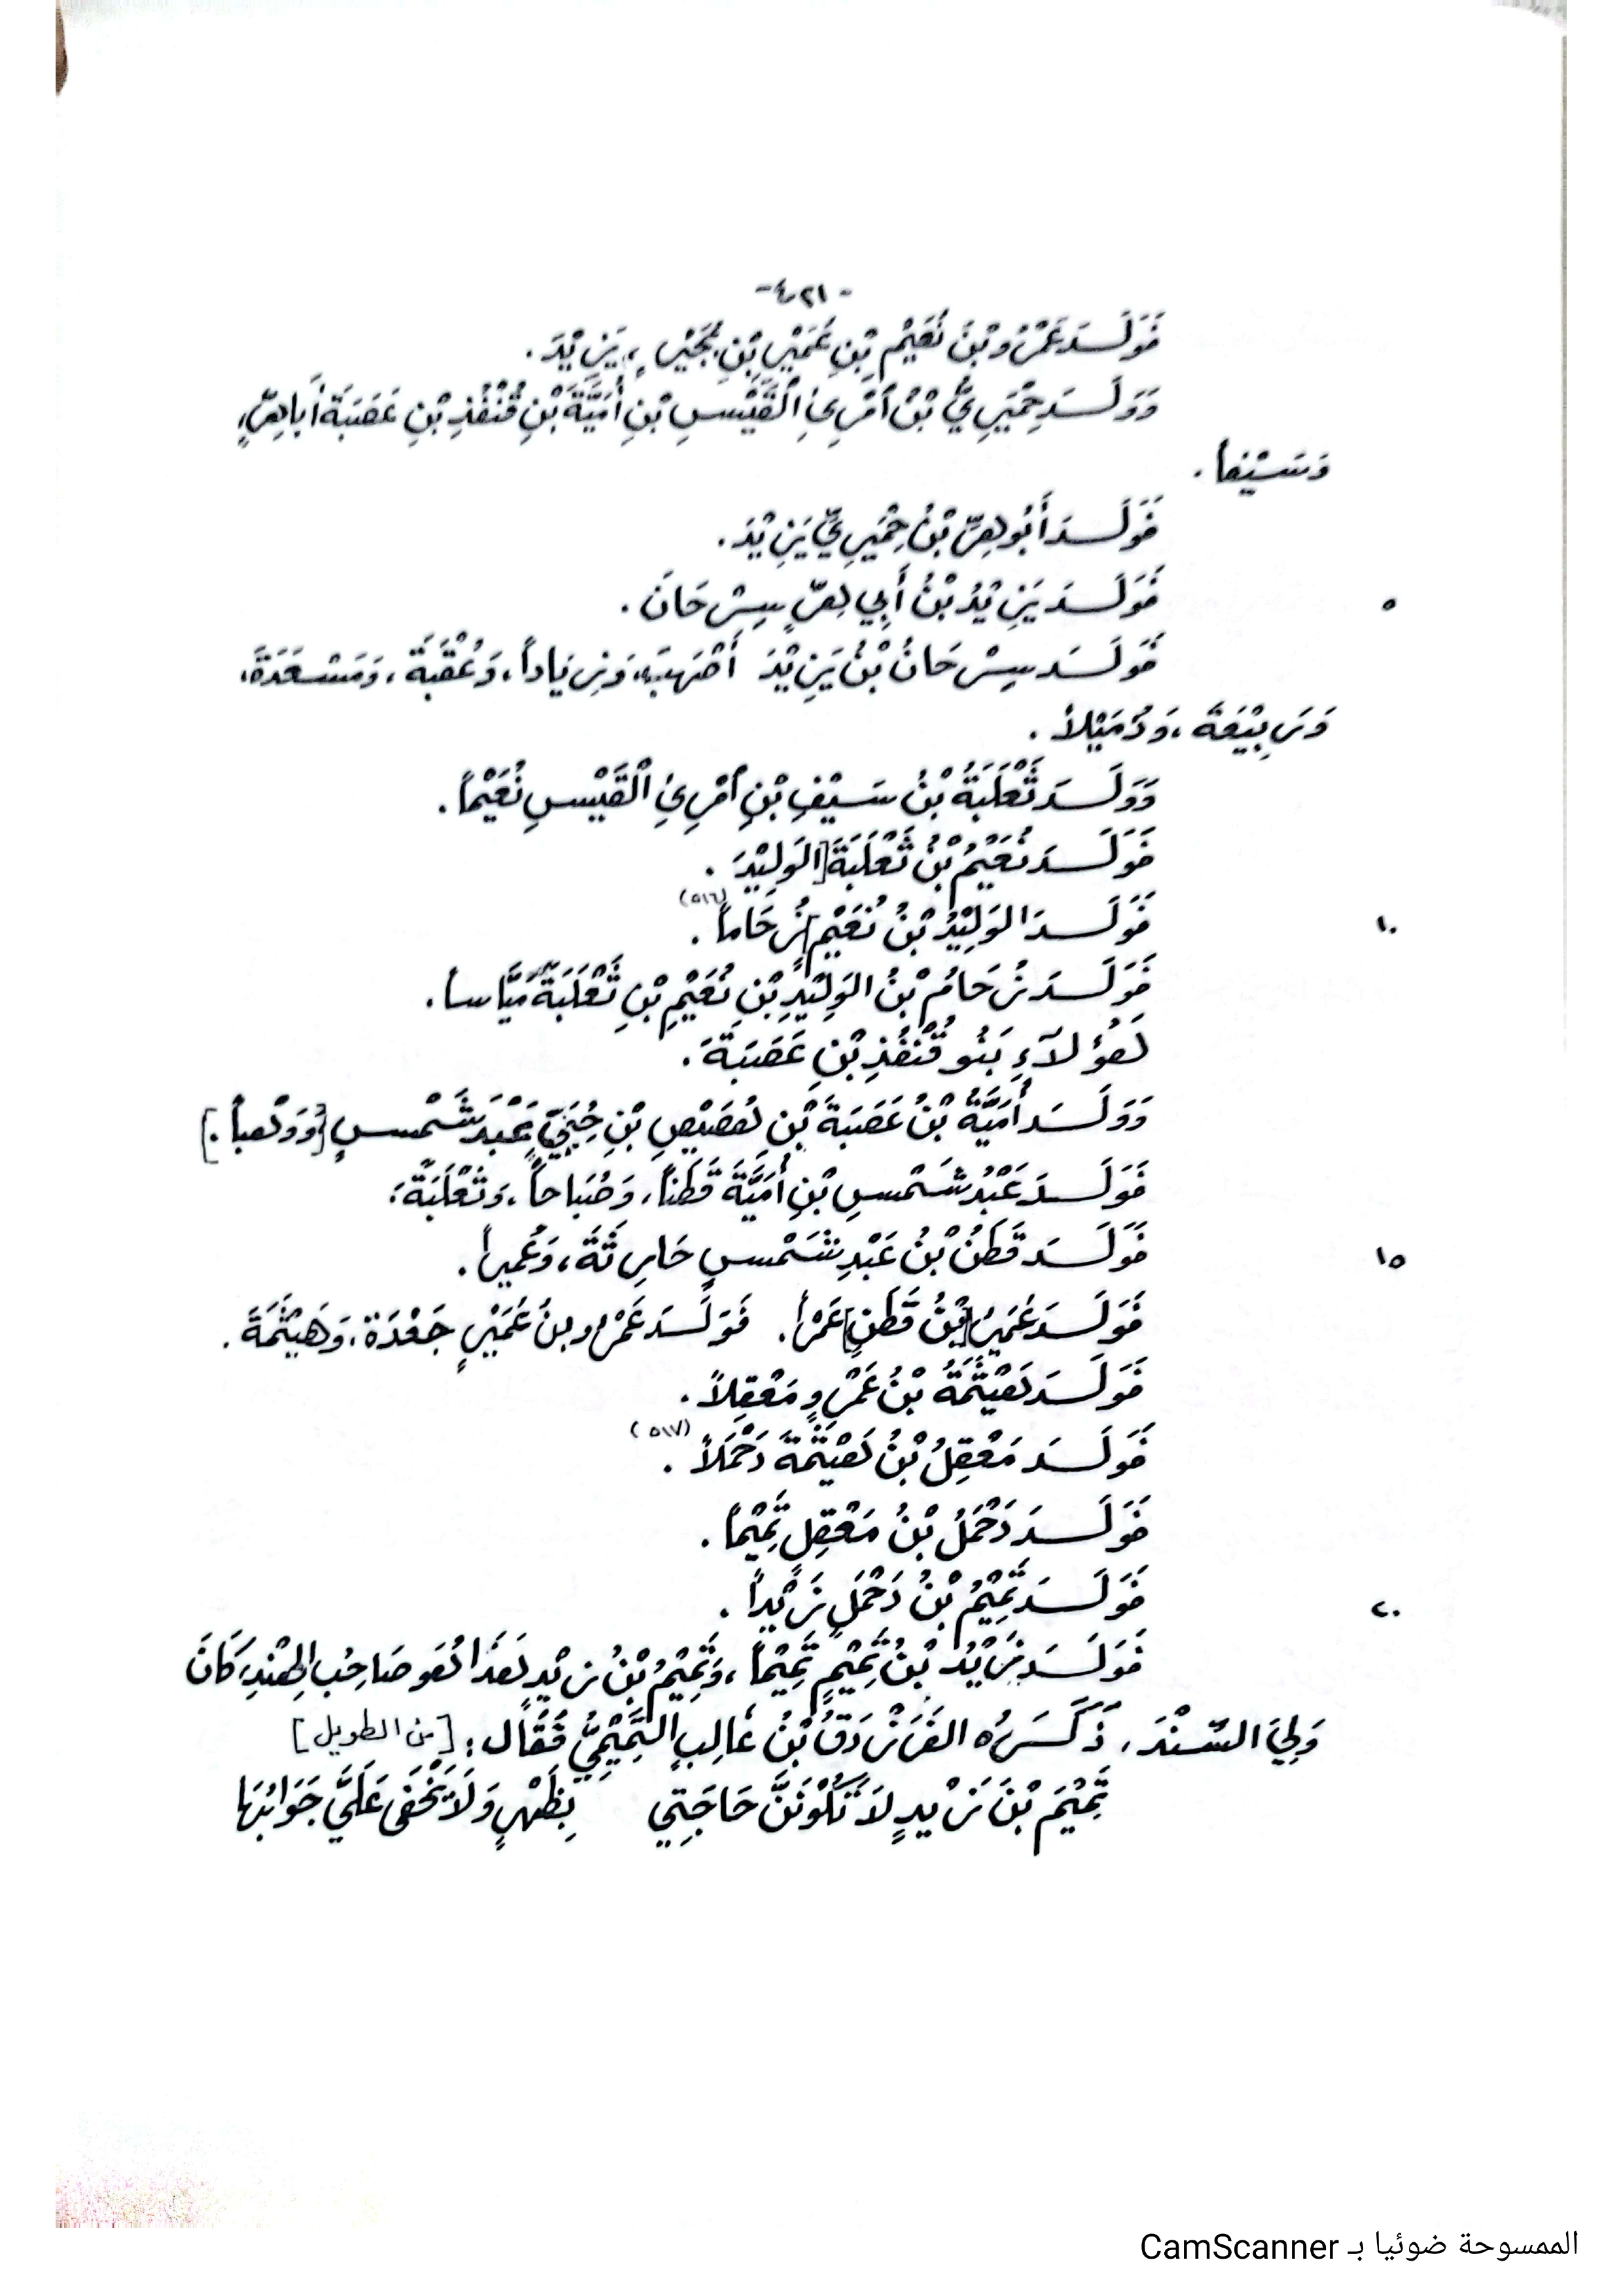 -٤٢١-
فَوَلَــدَ عَمْرُو بْنُ نُعَيْمِ بْنِ عُمَيْرِ بْنِ بُجَيْرٍ، يَزِيْدَ.
وَوَلَــدَ حِمْيَرِيُّ بْنُ ٱمْرِئِ ٱلْقَيْسِ بْنِ أُمَيَّةَ بْنِ قُنْفُذِ بْنِ عَصَبَةَ أَبَا هِرٍّ،
وَسَيْفاً.
فَوَلَــدَ أَبُو هِرِّ بْنُ حِمْيَرِيٍّ يَزِيْدَ.
٥ فَوَلَــدَ يَزِيْدُ بْنُ أَبِي هِرٍّ سِرْحَانَ.
فَوَلَــدَ سِرْحَانُ بْنُ يَزِيْدَ أَصْهَبَ، وَزِيَاداً، وَعُقْبَةَ، وَمَسْعَدَةَ،
وَرَبِيْعَةَ، وَدُمَيْلاً.
وَوَلَــدَ ثَعْلَبَةُ بْنُ سَيْفِ بْنِ ٱمْرِئِ ٱلْقَيْسِ نُعَيْماً.
فَوَلَــدَ نُعَيْمُ بْنُ ثَعْلَبَةَ [الوَلِيْدَ.
١٠ فَوَلَــدَ الوَلِيْدُ بْنُ نُعَيْمٍ] زُحَاماً (٥١٦).
فَوَلَــدَ زُحَامُ بْنُ الوَلِيْدِ بْنِ نُعَيْمِ بْنِ ثَعْلَبَةَ مَيَّاساً.
هَؤُلَاءِ بَنُو قُنْفُذِ بْنِ عَصَبَةَ.
وَوَلَــدَ أُمَيَّةُ بْنُ عَصَبَةَ بْنِ هُصَيْصِ بْنِ حُيَيٍّ عَبْدَ شَمْسٍ [وَوَهْباً.]
فَوَلَــدَ عَبْدُ شَمْسِ بْنِ أُمَيَّةَ قَطَناً، وَصُبَاحاً، وَثَعْلَبَةَ.
١٥ فَوَلَــدَ قَطَنُ بْنُ عَبْدِ شَمْسٍ حَارِثَةَ، وَعُمَيراً.
فَوَلَــدَ عُمَيْرُ [بْنُ قَطَنٍ] عَمْراً. فَوَلَــدَ عَمْرُو بنُ عُمَيْرٍ جَعْدَةَ، وَهَيْثَمَةَ.
فَوَلَــدَ هَيْثَمَةُ بْنُ عَمْرٍو مَعْقِلاً.
فَوَلَــدَ مَعْقِلُ بْنُ هَيْثَمَةَ دَحْمَلاً (٥١٧).
فَوَلَــدَ دَحْمَلُ بْنُ مَعْقِلٍ تَمِيْماً.
٢٠ فَوَلَــدَ تَمِيْمُ بْنُ دَحْمَلٍ زَيْداً.
فَوَلَــدَ زَيْدُ بْنُ تَمِيْمٍ تَمِيْماً، وَتَمِيْمُ بْنُ زيْدٍ هَذَا هُوَ صَاحِبُ الهِنْدِ، كَانَ
وَلِيَ السِّنْدَ، ذَكَــرَهُ الفَرَزْدَقُ بْنُ غَالِبٍ التَّمِيْمِيُّ فَقَالَ: [من الطويل]
تَمِيْمَ بْنَ زَيْدٍ لَا تَكُوْنَنَّ حَاجَتِي بِظَهْرٍ وَلَا يَخْفَى عَلَيَّ جَوَابُهَا
الممسوحة ضوئيا بـ CamScanner